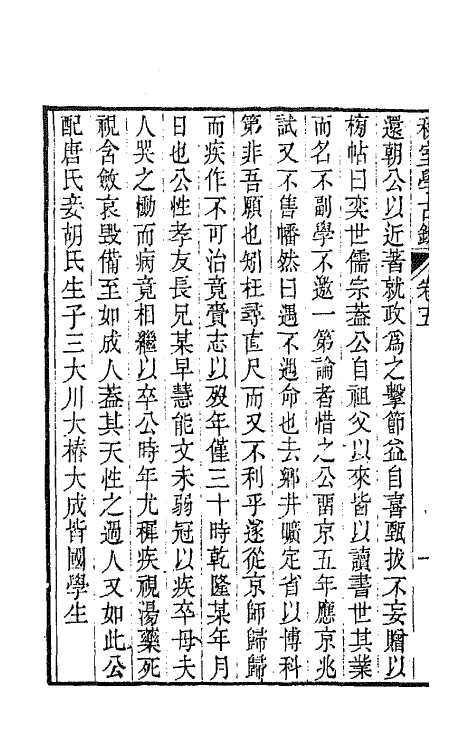 還朝公以近著就政爲之擊節益自喜甄拔不妄贈以
榜帖曰奕世儒宗蓋公自祖父以來皆以讀書世其業
而名不副學不邀一第論者惜之公畱京五年應京兆
試又不售幡然曰遇不遇命也去鄉井曠定省以博科
第非吾願也矧枉尋直尺而又不利乎遂從京師歸歸
而疾作不可治竟賫志以歿年僅三十時乾隆某年月
日也公性孝友長兄某早慧能文未弱冠以疾卒母夫
人哭之慟而病竟相繼以卒公時年尤穉疾視湯藥死
視含斂哀毀備至如成人蓋其天性之過人又如此公
配唐氏妾胡氏生子三大川大椿大成皆國學生